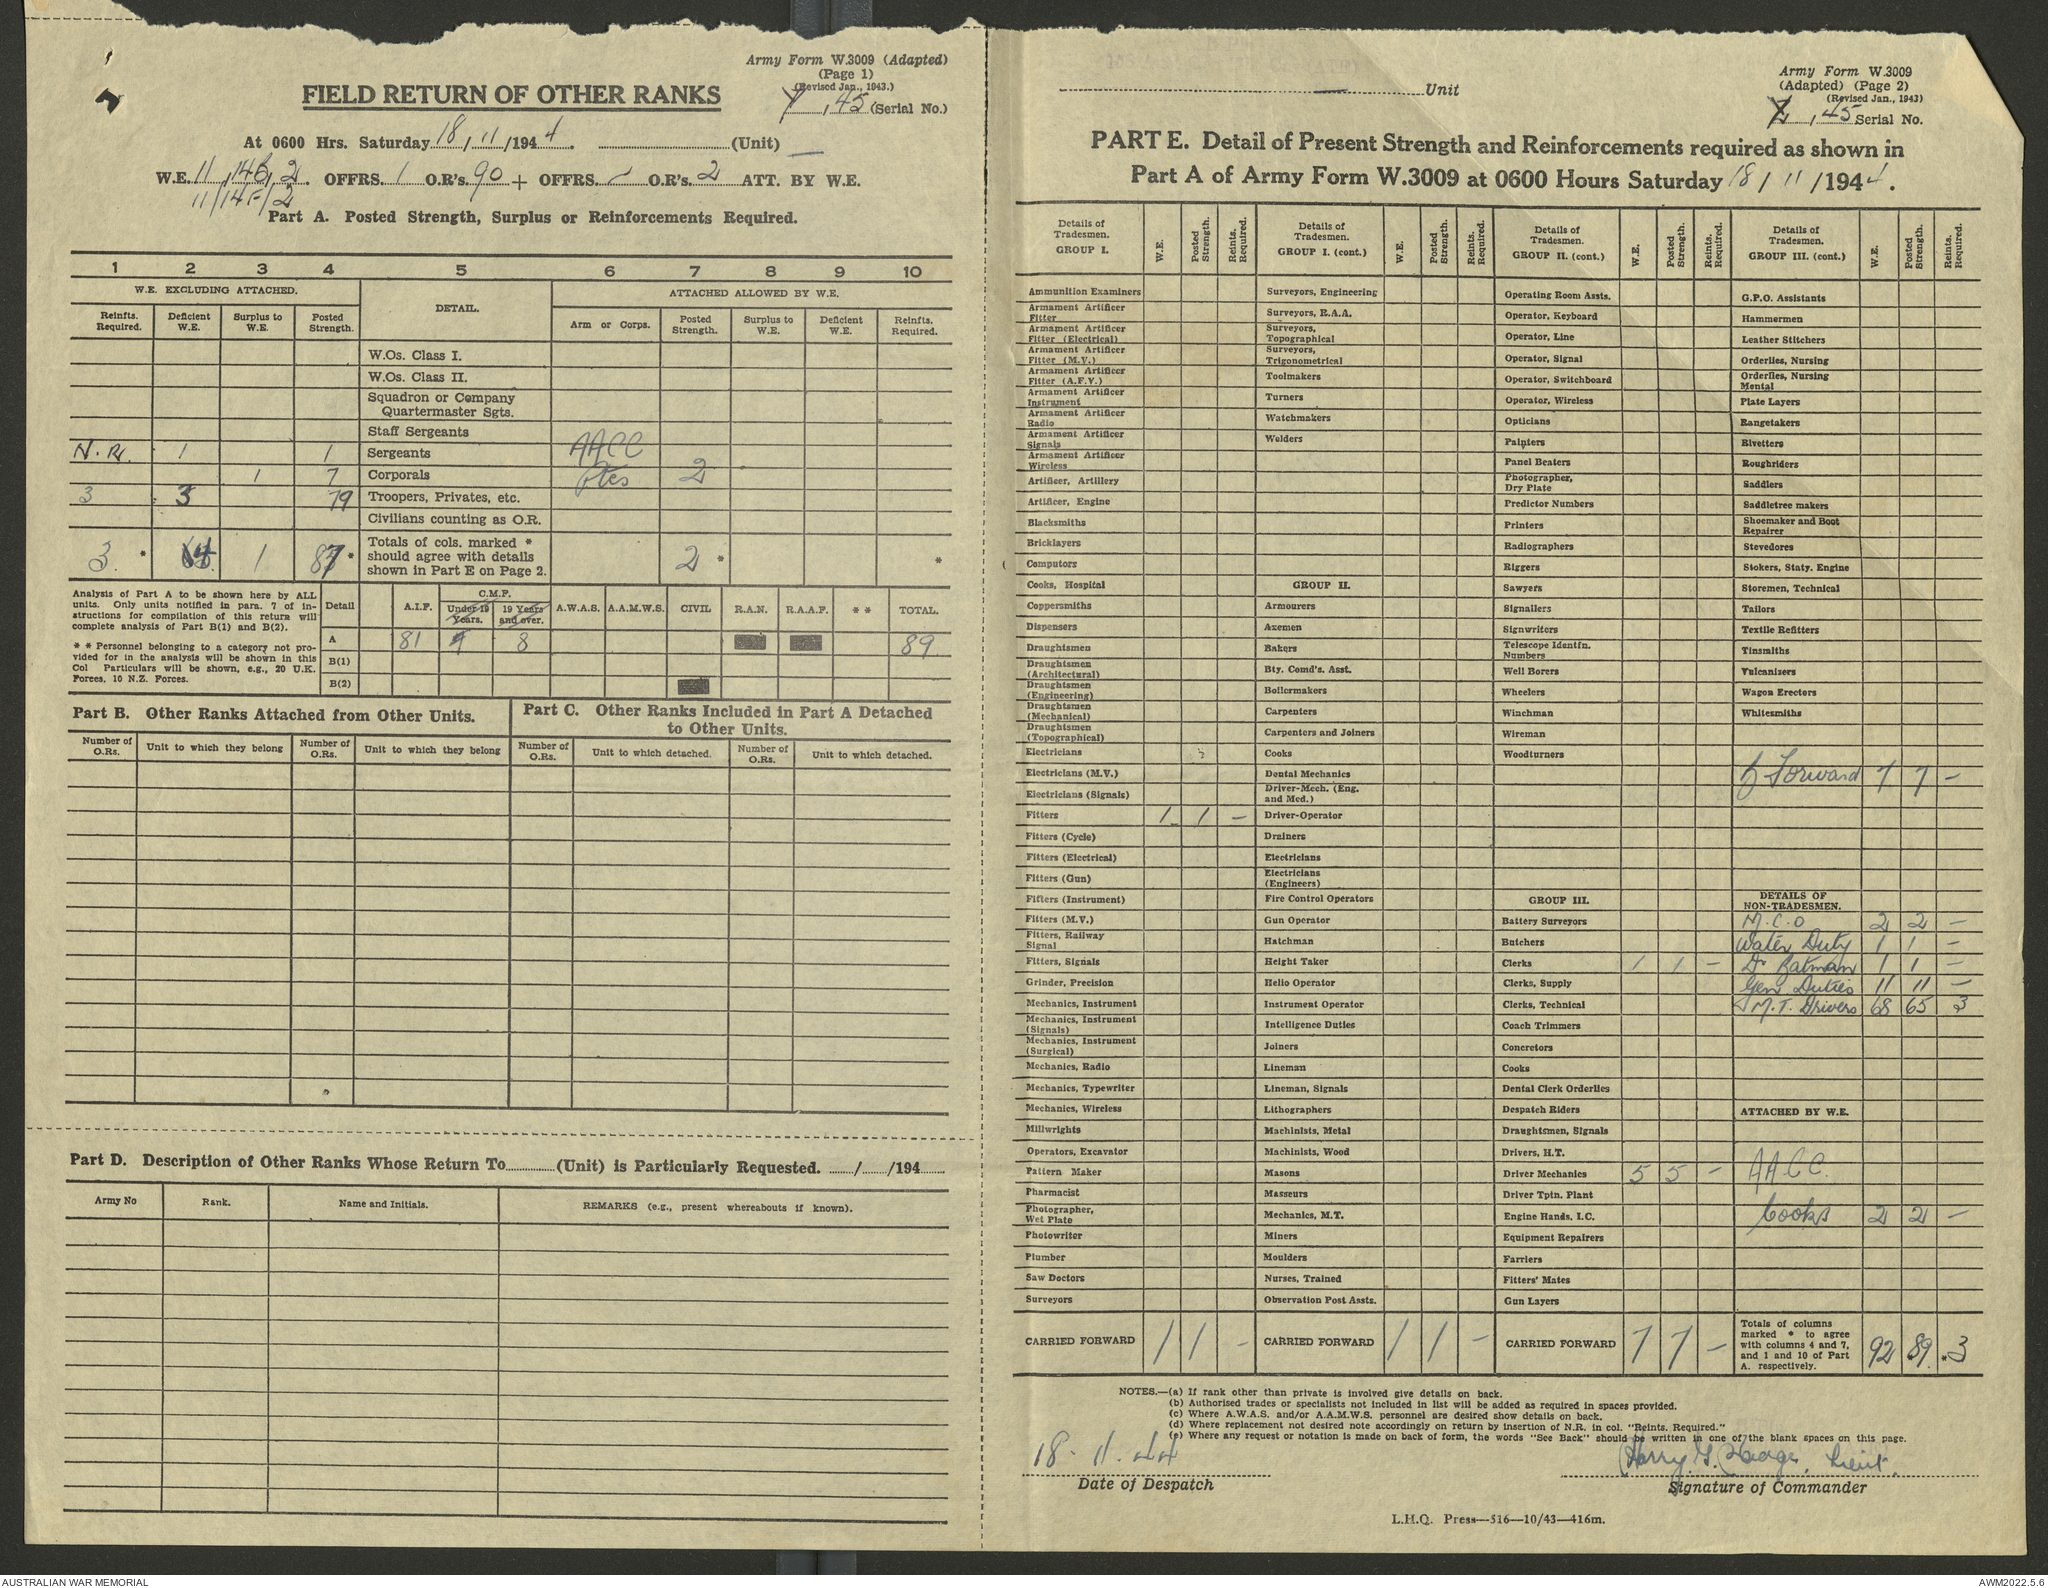 Army Form W.3009 (Adapted)
(Page 1)
(Revised Jan., 1943.)
FIELD RETURN OF OTHER RANKS
, 45 (Serial No.)
At 0600 Hrs. Saturday 18 / 11 /1944. (Unit) —
W.E. 11 , 14 , 2 . OFFRS. 1 O.R's. 90 + OFFRS. – O.R's. 2 ATT. BY W.E.
11/14F/2
Part A. Posted Strength, Surplus or Reinforcements Required.
1 2 3 4 5 6 7 8 9 10
W.E. EXCLUDING ATTACHED. DETAIL. ATTACHED ALLOWED BY W.E.
Reinfts. Required. Deficient W.E. Surplus to W.E. Posted Strength. Arm or Corps. Posted Strength. Surplus to W.E. Deficient W.E. Reinfts. Required.
W.Os. Class I.
W.Os. Class II.
Squadron or Company Quartermaster Sgts.
Staff Sergeants
N.R. 1 1 Sergeants AACC
1 7 Corporals Ptes 2
3 3 79 Troopers, Privates, etc.
Civilians counting as O.R.
3 * 1 87 * Totals of cols. marked * should agree with details shown in Part E on Page 2. 2 * *
Analysis of Part A to be shown here by ALL
units. Only units notified in para. 7 of in-
structions for compilation of this return will
complete analysis of Part B(1) and B(2).
* * Personnel belonging to a category not pro-
vided for in the analysis will be shown in this
Col Particulars will be shown, e.g., 20 U.K.
Forces, 10 N.Z. Forces.
Detail A.I.F. C.M.F. Under 19 Years. 19 Years and over. A.W.A.S. A.A.M.W.S. CIVIL R.A.N. R.A.A.F. * * TOTAL.
A 81 8 89
B(1)
B(2)
Part B. Other Ranks Attached from Other Units.
Number of O.Rs. Unit to which they belong Number of O.Rs. Unit to which they belong
Part C. Other Ranks Included in Part A Detached
to Other Units.
Number of O.Rs. Unit to which detached. Number of O.Rs. Unit to which detached.
Part D. Description of Other Ranks Whose Return To (Unit) is Particularly Requested. / /194
Army No Rank. Name and Initials. REMARKS (e.g., present whereabouts if known).
— Unit
Army Form W.3009
(Adapted) (Page 2)
(Revised Jan., 1943)
, 45 Serial No.
PART E. Detail of Present Strength and Reinforcements required as shown in
Part A of Army Form W.3009 at 0600 Hours Saturday 18 / 11 /1944.
Details of Tradesmen. GROUP I. W.E. Posted Strength. Reints. Required.
Ammunition Examiners
Armament Artificer Fitter
Armament Artificer Fitter (Electrical)
Armament Artificer Fitter (M.V.)
Armament Artificer Fitter (A.F.V.)
Armament Artificer Instrument
Armament Artificer Radio
Armament Artificer Signals
Armament Artificer Wireless
Artificer, Artillery
Artificer, Engine
Blacksmiths
Bricklayers
Computors
Cooks, Hospital
Coppersmiths
Dispensers
Draughtsmen
Draughtsmen (Architectural)
Draughtsmen (Engineering)
Draughtsmen (Mechanical)
Draughtsmen (Topographical)
Electricians
Electricians (M.V.)
Electricians (Signals)
Fitters 1 1 –
Fitters (Cycle)
Fitters (Electrical)
Fitters (Gun)
Fitters (Instrument)
Fitters (M.V.)
Fitters, Railway Signal
Fitters, Signals
Grinder, Precision
Mechanics, Instrument
Mechanics, Instrument (Signals)
Mechanics, Instrument (Surgical)
Mechanics, Radio
Mechanics, Typewriter
Mechanics, Wireless
Millwrights
Operators, Excavator
Pattern Maker
Pharmacist
Photographer, Wet Plate
Photowriter
Plumber
Saw Doctors
Surveyors
CARRIED FORWARD 1 1 –
Details of Tradesmen. GROUP I. (cont.) W.E. Posted Strength. Reints. Required.
Surveyors, Engineering
Surveyors, R.A.A.
Surveyors, Topographical
Surveyors, Trigonometrical
Toolmakers
Turners
Watchmakers
Welders
GROUP II.
Armourers
Axemen
Bakers
Bty. Comd's. Asst.
Boilermakers
Carpenters
Carpenters and Joiners
Cooks
Dental Mechanics
Driver-Mech. (Eng. and Med.)
Driver-Operator
Drainers
Electricians
Electricians (Engineers)
Fire Control Operators
Gun Operator
Hatchman
Height Taker
Helio Operator
Instrument Operator
Intelligence Duties
Joiners
Lineman
Lineman, Signals
Lithographers
Machinists, Metal
Machinists, Wood
Masons
Masseurs
Mechanics, M.T.
Miners
Moulders
Nurses, Trained
Observation Post Assts.
CARRIED FORWARD 1 1 –
Details of Tradesmen. GROUP II. (cont.) W.E. Posted Strength. Reints. Required.
Operating Room Assts.
Operator, Keyboard
Operator, Line
Operator, Signal
Operator, Switchboard
Operator, Wireless
Opticians
Painters
Panel Beaters
Photographer, Dry Plate
Predictor Numbers
Printers
Radiographers
Riggers
Sawyers
Signallers
Signwriters
Telescope Identfn. Numbers
Well Borers
Wheelers
Winchman
Wireman
Woodturners
GROUP III.
Battery Surveyors
Butchers
Clerks 1 1 –
Clerks, Supply
Clerks, Technical
Coach Trimmers
Concretors
Cooks
Dental Clerk Orderlies
Despatch Riders
Draughtsmen, Signals
Drivers, H.T.
Driver Mechanics 5 5 –
Driver Tptn. Plant
Engine Hands, I.C.
Equipment Repairers
Farriers
Fitters' Mates
Gun Layers
CARRIED FORWARD 7 7 –
Details of Tradesmen. GROUP III. (cont.) W.E. Posted Strength. Reints. Required.
G.P.O. Assistants
Hammermen
Leather Stitchers
Orderlies, Nursing
Orderlies, Nursing Mental
Plate Layers
Rangetakers
Rivetters
Roughriders
Saddlers
Saddletree makers
Shoemaker and Boot Repairer
Stevedores
Stokers, Staty. Engine
Storemen, Technical
Tailors
Textile Refitters
Tinsmiths
Vulcanizers
Wagon Erectors
Whitesmiths
Forward 7 7 –
DETAILS OF NON-TRADESMEN.
N.C.O 2 2 –
Water Duty 1 1 –
Dr Batman 1 1 –
Gen Duties 11 11 –
M.T. Drivers 68 65 3
ATTACHED BY W.E.
AACC.
Cooks 2 2 –
Totals of columns marked * to agree with columns 4 and 7, and 1 and 10 of Part A. respectively. 92 89 *3
NOTES.—(a) If rank other than private is involved give details on back.
(b) Authorised trades or specialists not included in list will be added as required in spaces provided.
(c) Where A.W.A.S. and/or A.A.M.W.S. personnel are desired show details on back.
(d) Where replacement not desired note accordingly on return by insertion of N.R. in col. "Reints. Required."
(e) Where any request or notation is made on back of form, the words "See Back" should be written in one of the blank spaces on this page.
18.11.44
Date of Despatch
Harry G. Lieut.
Signature of Commander
L.H.Q. Press—516—10/43—416m.
AUSTRALIAN WAR MEMORIAL
AWM2022.5.6